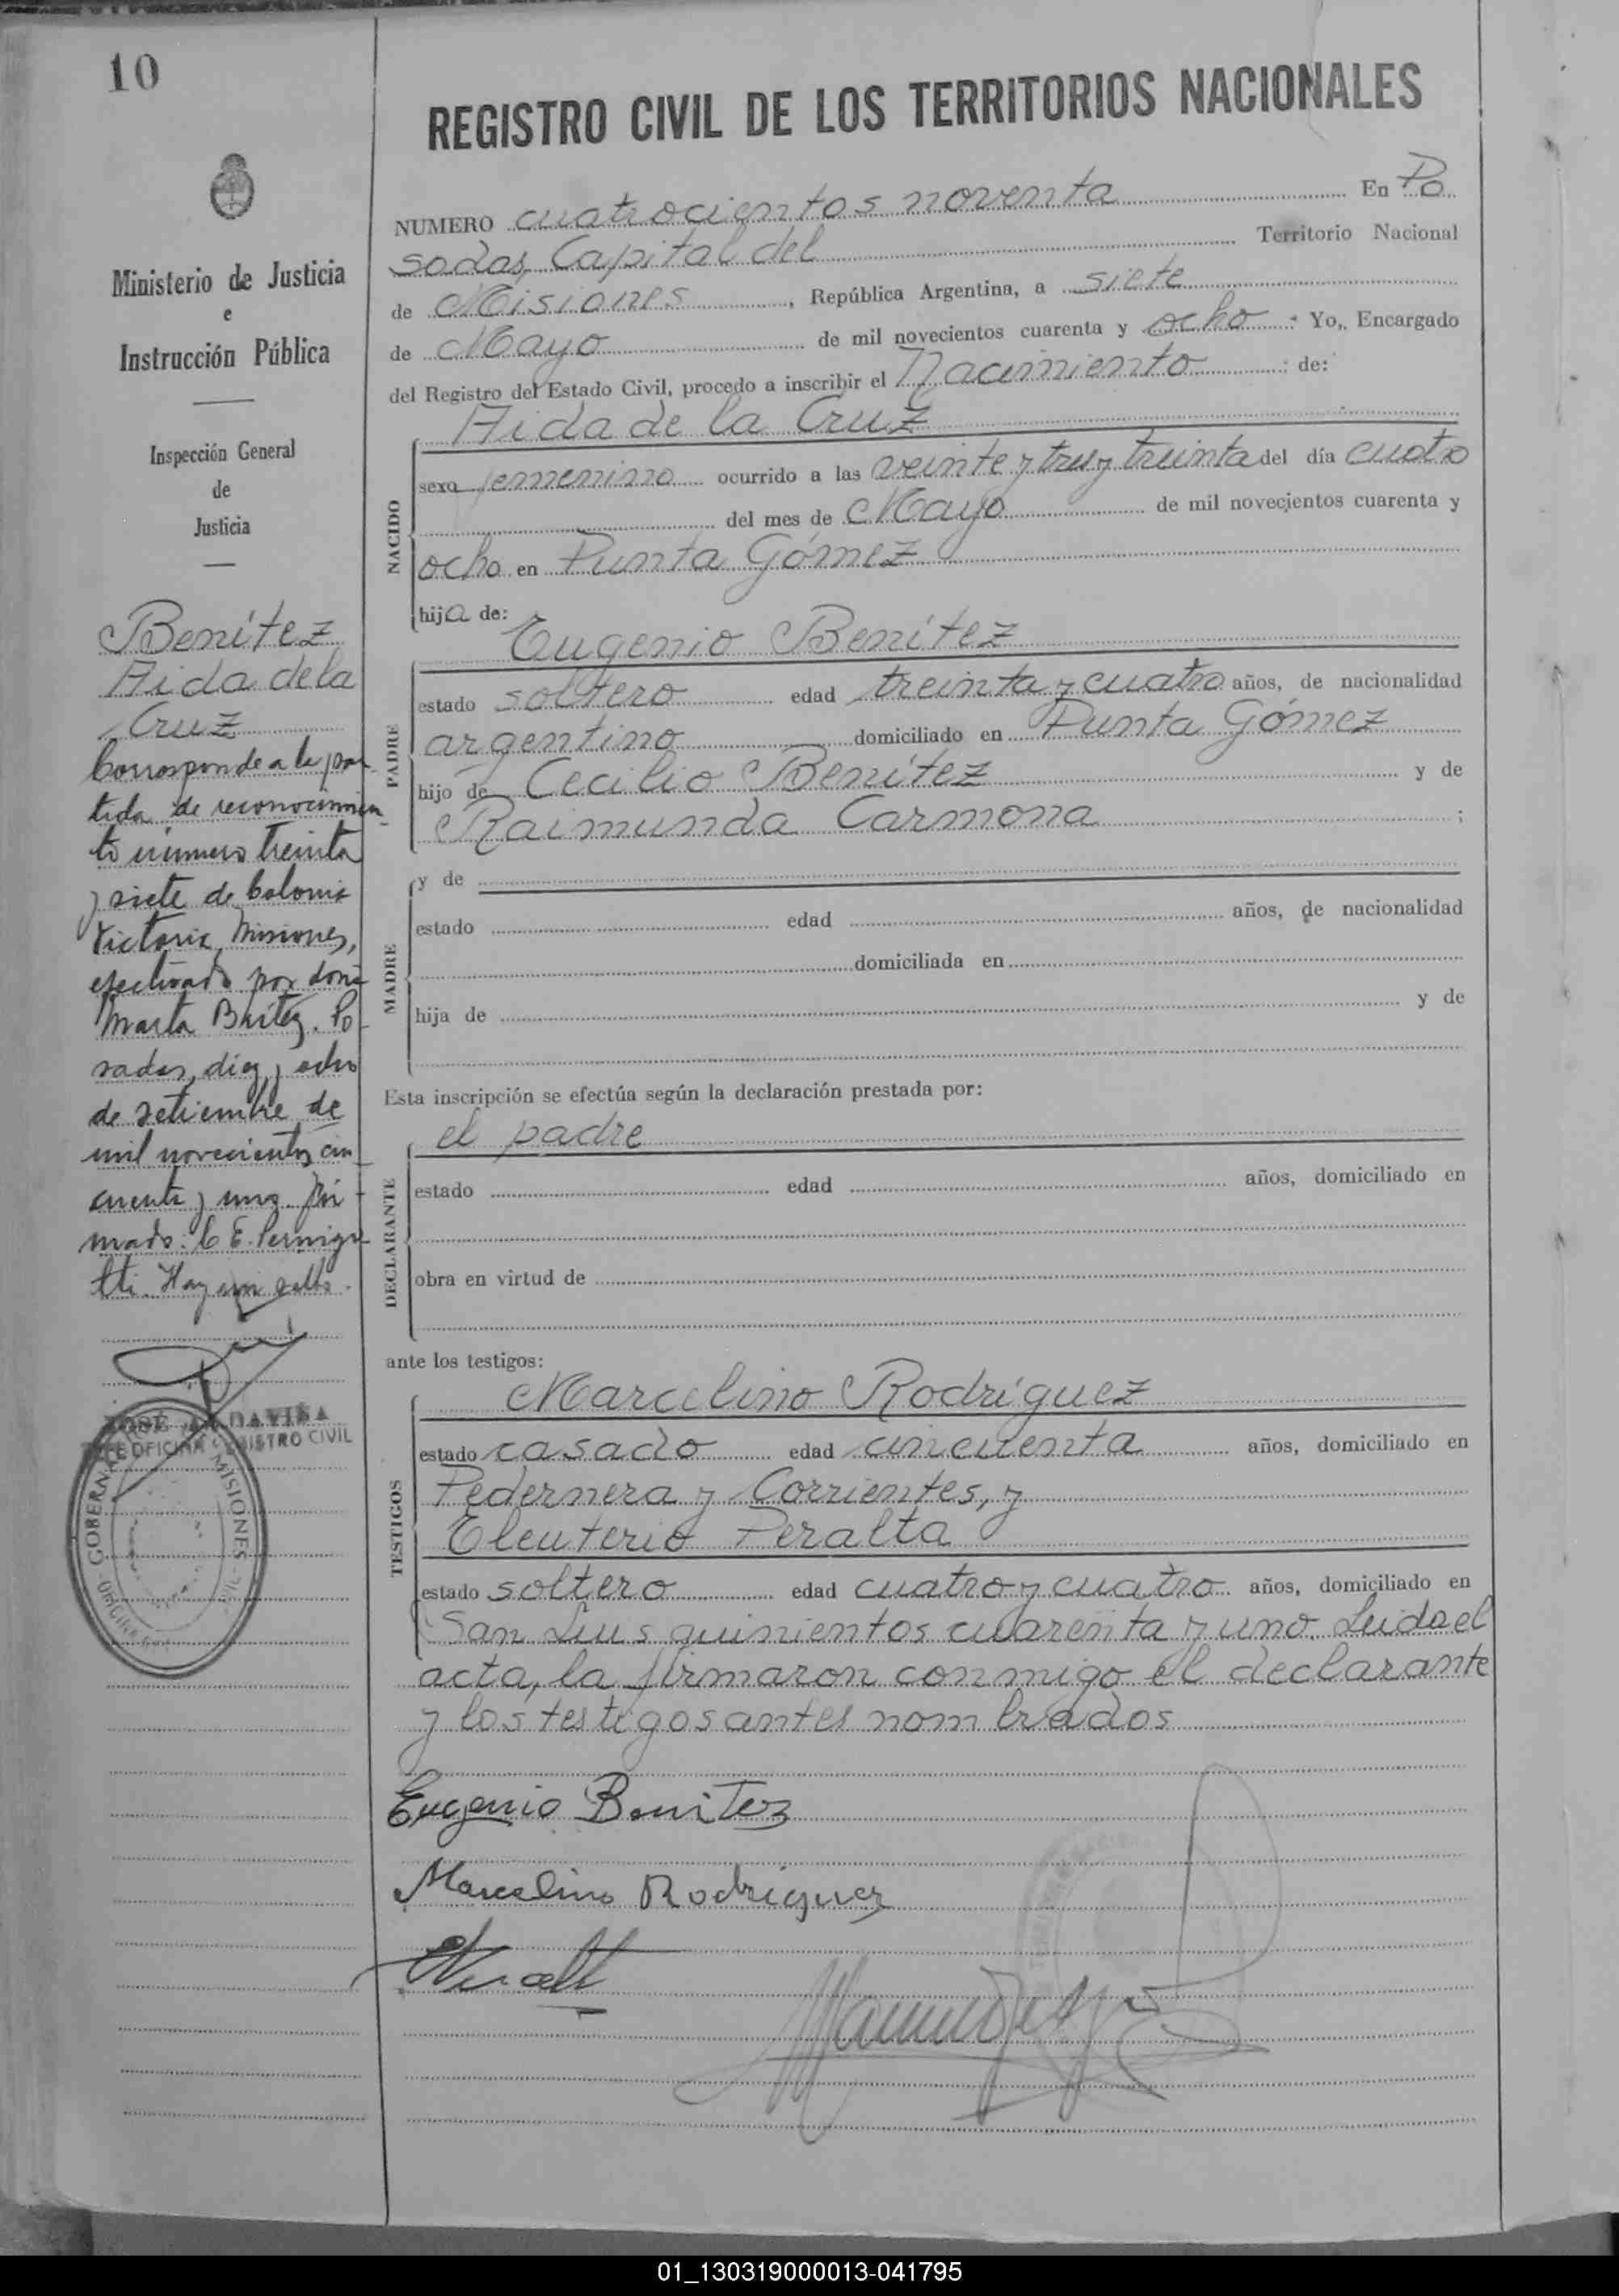 10
Ministerio de Justicia
e
Instrucción Pública
Inspección General
de
Justicia
Benítez
Aida de la
Cruz
Corresponde a la par-
tida de reconocimien-
to número treinta
y siete de Colonia
Victoria, Misiones,
efectuado por doña
Marta Brítez. Po-
sadas, diez y ocho
de setiembre de
mil novecientos cin-
cuenta y uno. Fir-
mado: C. E. Pernigo-
tti. Hay un sello.
JOSÉ DAVIÑA
JEFE OFICINA REGISTRO CIVIL
GOBERN MISIONES
REGISTRO CIVIL DE LOS TERRITORIOS NACIONALES
NUMERO cuatrocientos noventa En Po
sadas, Capital del Territorio Nacional
de Misiones, República Argentina, a siete
de Mayo de mil novecientos cuarenta y ocho. Yo, Encargado
del Registro del Estado Civil, procedo a inscribir el Nacimiento de:
Aida de la Cruz
NACIDO
sexo femenino ocurrido a las veinte y tres y treinta del día cuatro
del mes de Mayo de mil novecientos cuarenta y
ocho en Punta Gómez
hija de:
Eugenio Benítez
PADRE
estado soltero edad treinta y cuatro años, de nacionalidad
argentino domiciliado en Punta Gómez
hijo de Cecilio Benítez y de
Raimunda Carmona ;
MADRE
y de
estado edad años, de nacionalidad
domiciliada en
hija de y de
Esta inscripción se efectúa según la declaración prestada por:
el padre
DECLARANTE
estado edad años, domiciliado en
obra en virtud de
ante los testigos:
Marcelino Rodríguez
TESTIGOS
estado casado edad cincuenta años, domiciliado en
Pedernera y Corrientes, y
Eleuterio Peralta
estado soltero edad cuatro y cuatro años, domiciliado en
San Luis quinientos cuarenta y uno. Leida el
acta, la firmaron conmigo el declarante
y los testigos antes nombrados
Eugenio Benitez
Marcelino Rodriguez
01_130319000013-041795